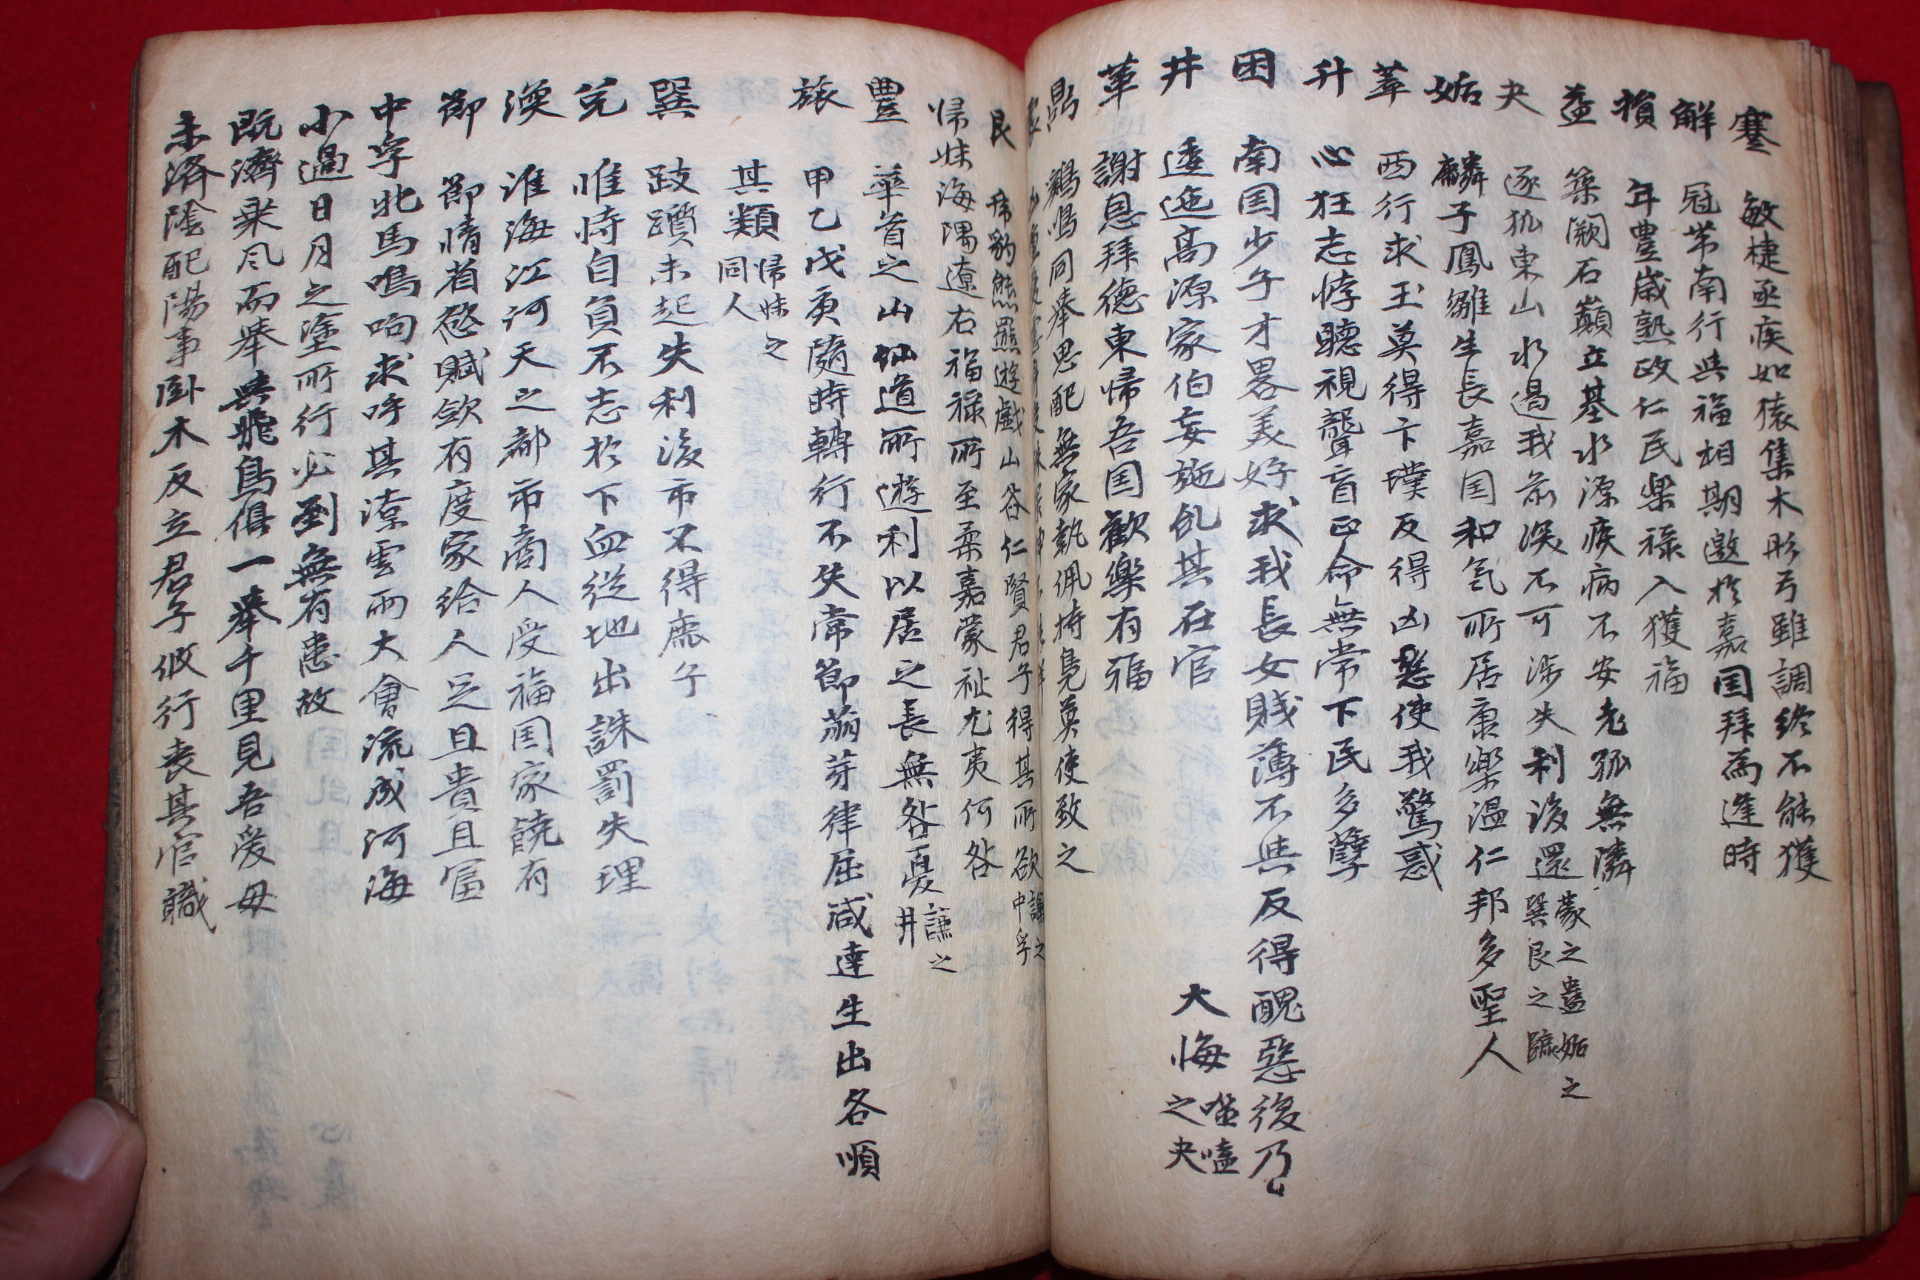 蹇 敏捷亟疾如猿集木彤弓雖調終不能獲
解 冠帶南行與福相期邀於嘉国拜為逢時
損 年豊歳熟政仁民樂禄入獲福
益 築闕石巓立基水源疾病不安老孤無隣
夬 逐狐東山水遏我前深不可渉失利後還 蒙之蠱姤之 巽艮之臨
姤 麟子鳳雛生長嘉国和氣所居康樂温仁邦多聖人
萃 西行求玉莫得卞璞反得凶惡使我驚惑
升 心狂志悖聽視聾盲正命無常下民多孽
困 南国少子才畧美好求我長女賎薄不與反得醜惡後乃
大悔 噬嗑之夬
井 逶迤高源家伯妄施乱其在官
革 謝恩拜德東帰吾国歓樂有福
鼎 鵶鳴同擧思配無家執佩持鳧莫使致之
艮 豹熊羆遊戯山谷仁賢君子得其所欲 謙之中孚
帰妹 海隅遼右福禄所至柔嘉蒙祉尤夷何咎
豊 華首之山仙道所遊利以居之長無咎憂 謙之井
旅 甲乙戊庚隨時轉行不失常節萠芽律屈咸達生出各順
其類 帰妹之同人
巽 跂躓未起失利後市不得鹿子
兌 惟恃自負不志於下血従地出誅罰失理
渙 淮海江河天之都市商人受福国家饒有
節 節情省慾賦歛有度家給人足且貴且冨
中孚 牝馬鳴呴求呼其潦雲雨大會流成河海
小過 日月之塗所行必到無有患故
既濟 乗凮而擧與飛鳥俱一擧千里見吾愛母
未済 陰配陽争臥木反立君子攸行喪其官職